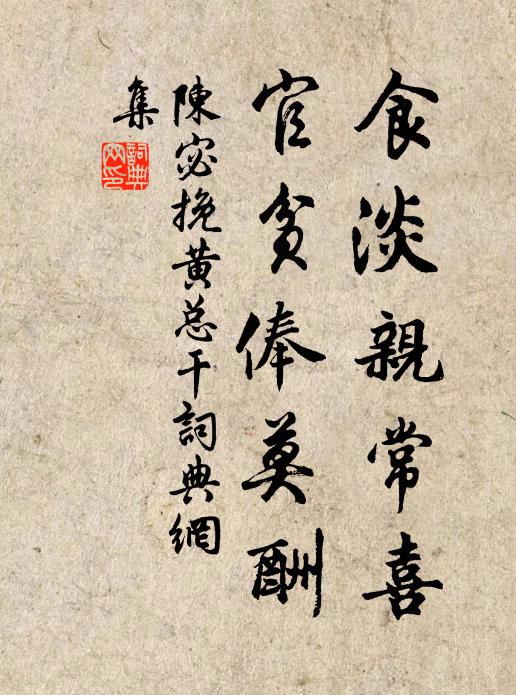 食淡親常喜
官貧俸莫酬
陳宓挽黃总干詞典網
集
詞典網印